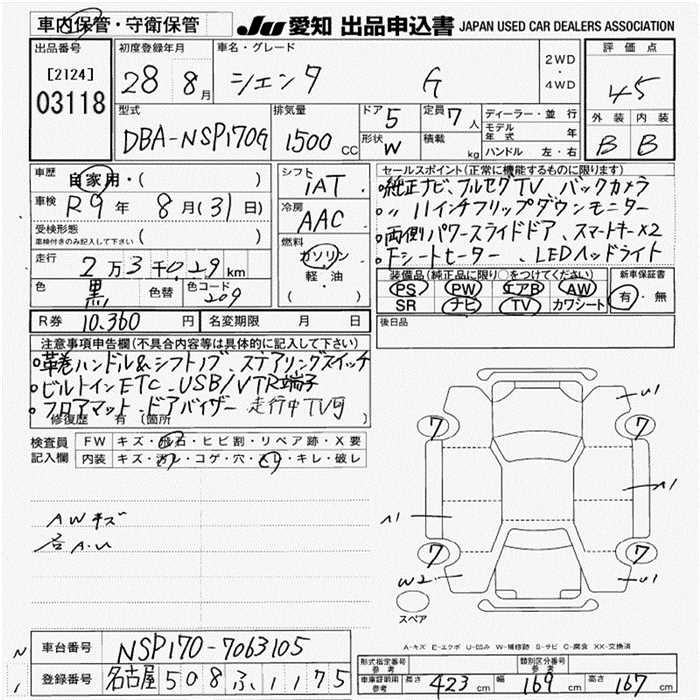 車内保管・守衛保管 JU 愛知 出品申込書 JAPAN USED CAR DEALERS ASSOCIATION
出品番号 [2124] 03118
初度登録年月 28 8月
車名・グレード シエンタ G
2WD・4WD
評価点 4.5
外装 内装
B B
型式 DBA-NSP170G
排気量 1500 CC
ドア 5 形状 W
定員 7人 積載 kg
ディーラー・並行
モデル年式 年
ハンドル 左・右
車歴 自家用・( )
車検 R9年 8月(31日)
受検形態 ( )
車検付きのみ記入して下さい
走行 2万3千029km
色 黒 色替 色コード 209
シフト IAT
冷房 AAC
燃料 ガソリン
軽・油
( )
セールスポイント(正常に機能するものに限ります)
・純正ナビ、フルセグTV、バックカメラ
・〃 11インチフリップダウンモニター
・両側パワースライドドア、スマートキー×2
・Fシートヒーター、LEDヘッドライト
装備品(純正品に限り○をつけてください) 新車保証書
PS PW エアB AW 有・無
SR ナビ TV カワシート
R券 10.360円 名変期限 月 日
後日品
注意事項申告欄(不具合内容等は具体的に記入して下さい)
・革巻ハンドル&シフトノブ、ステアリングスイッチ
・ビルトインETC、USB/VTR端子
・フロアマット、ドアバイザー 走行中TV可
修復歴 有 (箇所 )
検査員記入欄
FW キズ・飛石・ヒビ割・リペア跡・X要
内装 キズ・汚レ・コゲ・穴・スレ・キレ・破レ
AWキズ
各A.U
U1
7 7
A1 A1
7 7
W2 U1
スペア
A-キズ E-エクボ U-凹み W-補修跡 S-サビ C-腐食 XX-交換済
車台番号 NSP170-7063105
登録番号 名古屋 508 ふ 1175
形式指定番号 参考 類別区分番号 参考
車庫証明用 参考 長さ 423cm 幅 169cm 高さ 167cm